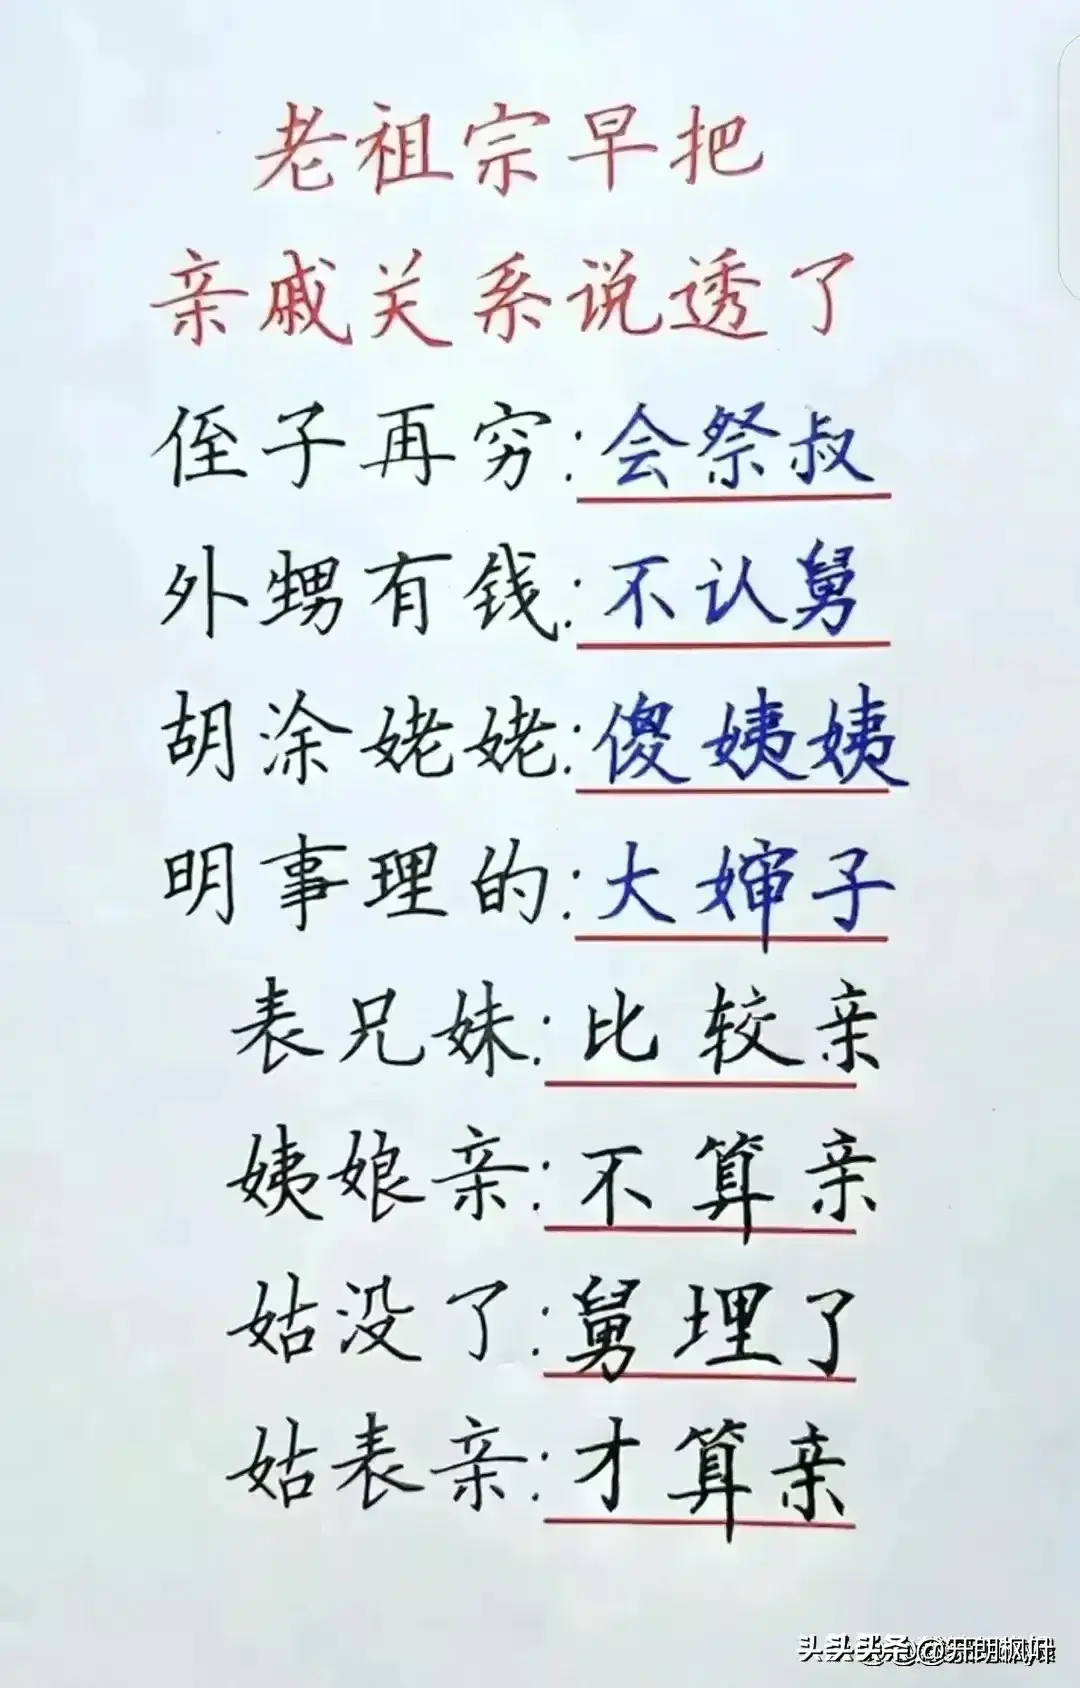 老祖宗早把
亲戚关系说透了
侄子再穷:会祭叔
外甥有钱:不认舅
胡涂姥姥:傻姨姨
明事理的:大婶子
表兄妹:比较亲
姨娘亲:不算亲
姑没了:舅埋了
姑表亲:才算亲
头头头条@开朗枫叶